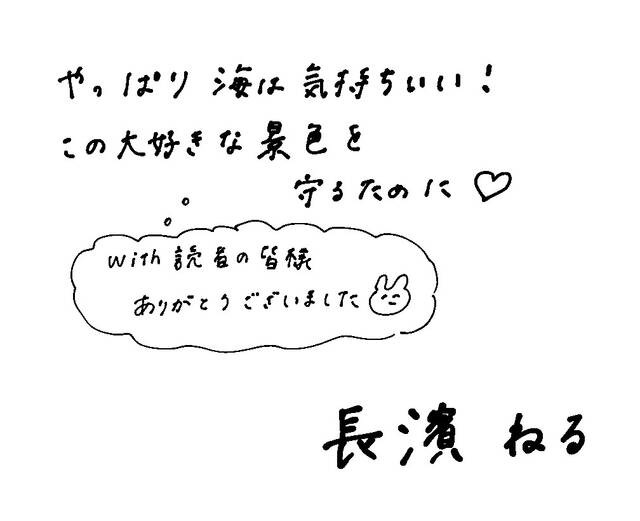 やっぱり 海は 気持ちいい！
この大好きな景色を
守るために♡
with 読者の皆様
ありがとうございました
長濱 ねる